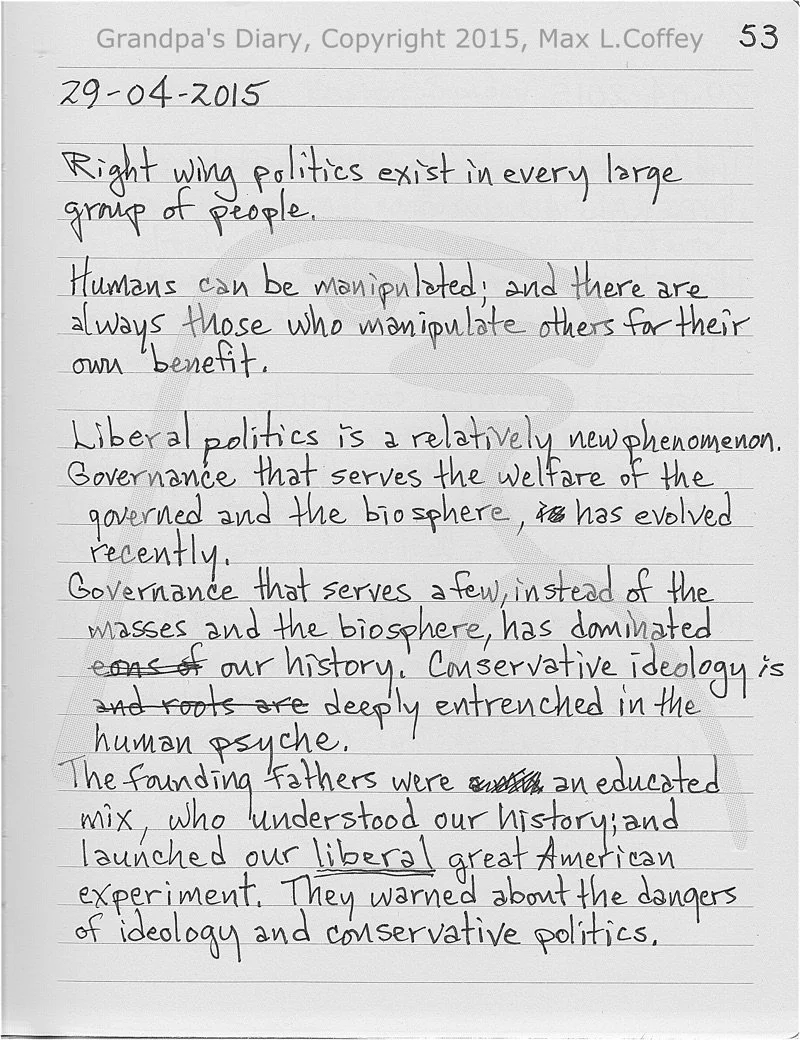 Grandpa's Diary, Copyright 2015, Max L.Coffey 53
29-04-2015
Right wing politics exist in every large
group of people.
Humans can be manipulated; and there are
always those who manipulate others for their
own benefit.
Liberal politics is a relatively new phenomenon.
Governance that serves the welfare of the
governed and the biosphere, is has evolved
recently.
Governance that serves a few, instead of the
masses and the biosphere, has dominated
eons of our history. Conservative ideology is
and roots are deeply entrenched in the
human psyche.
The founding fathers were an educated
mix, who understood our history; and
launched our liberal great American
experiment. They warned about the dangers
of ideology and conservative politics.